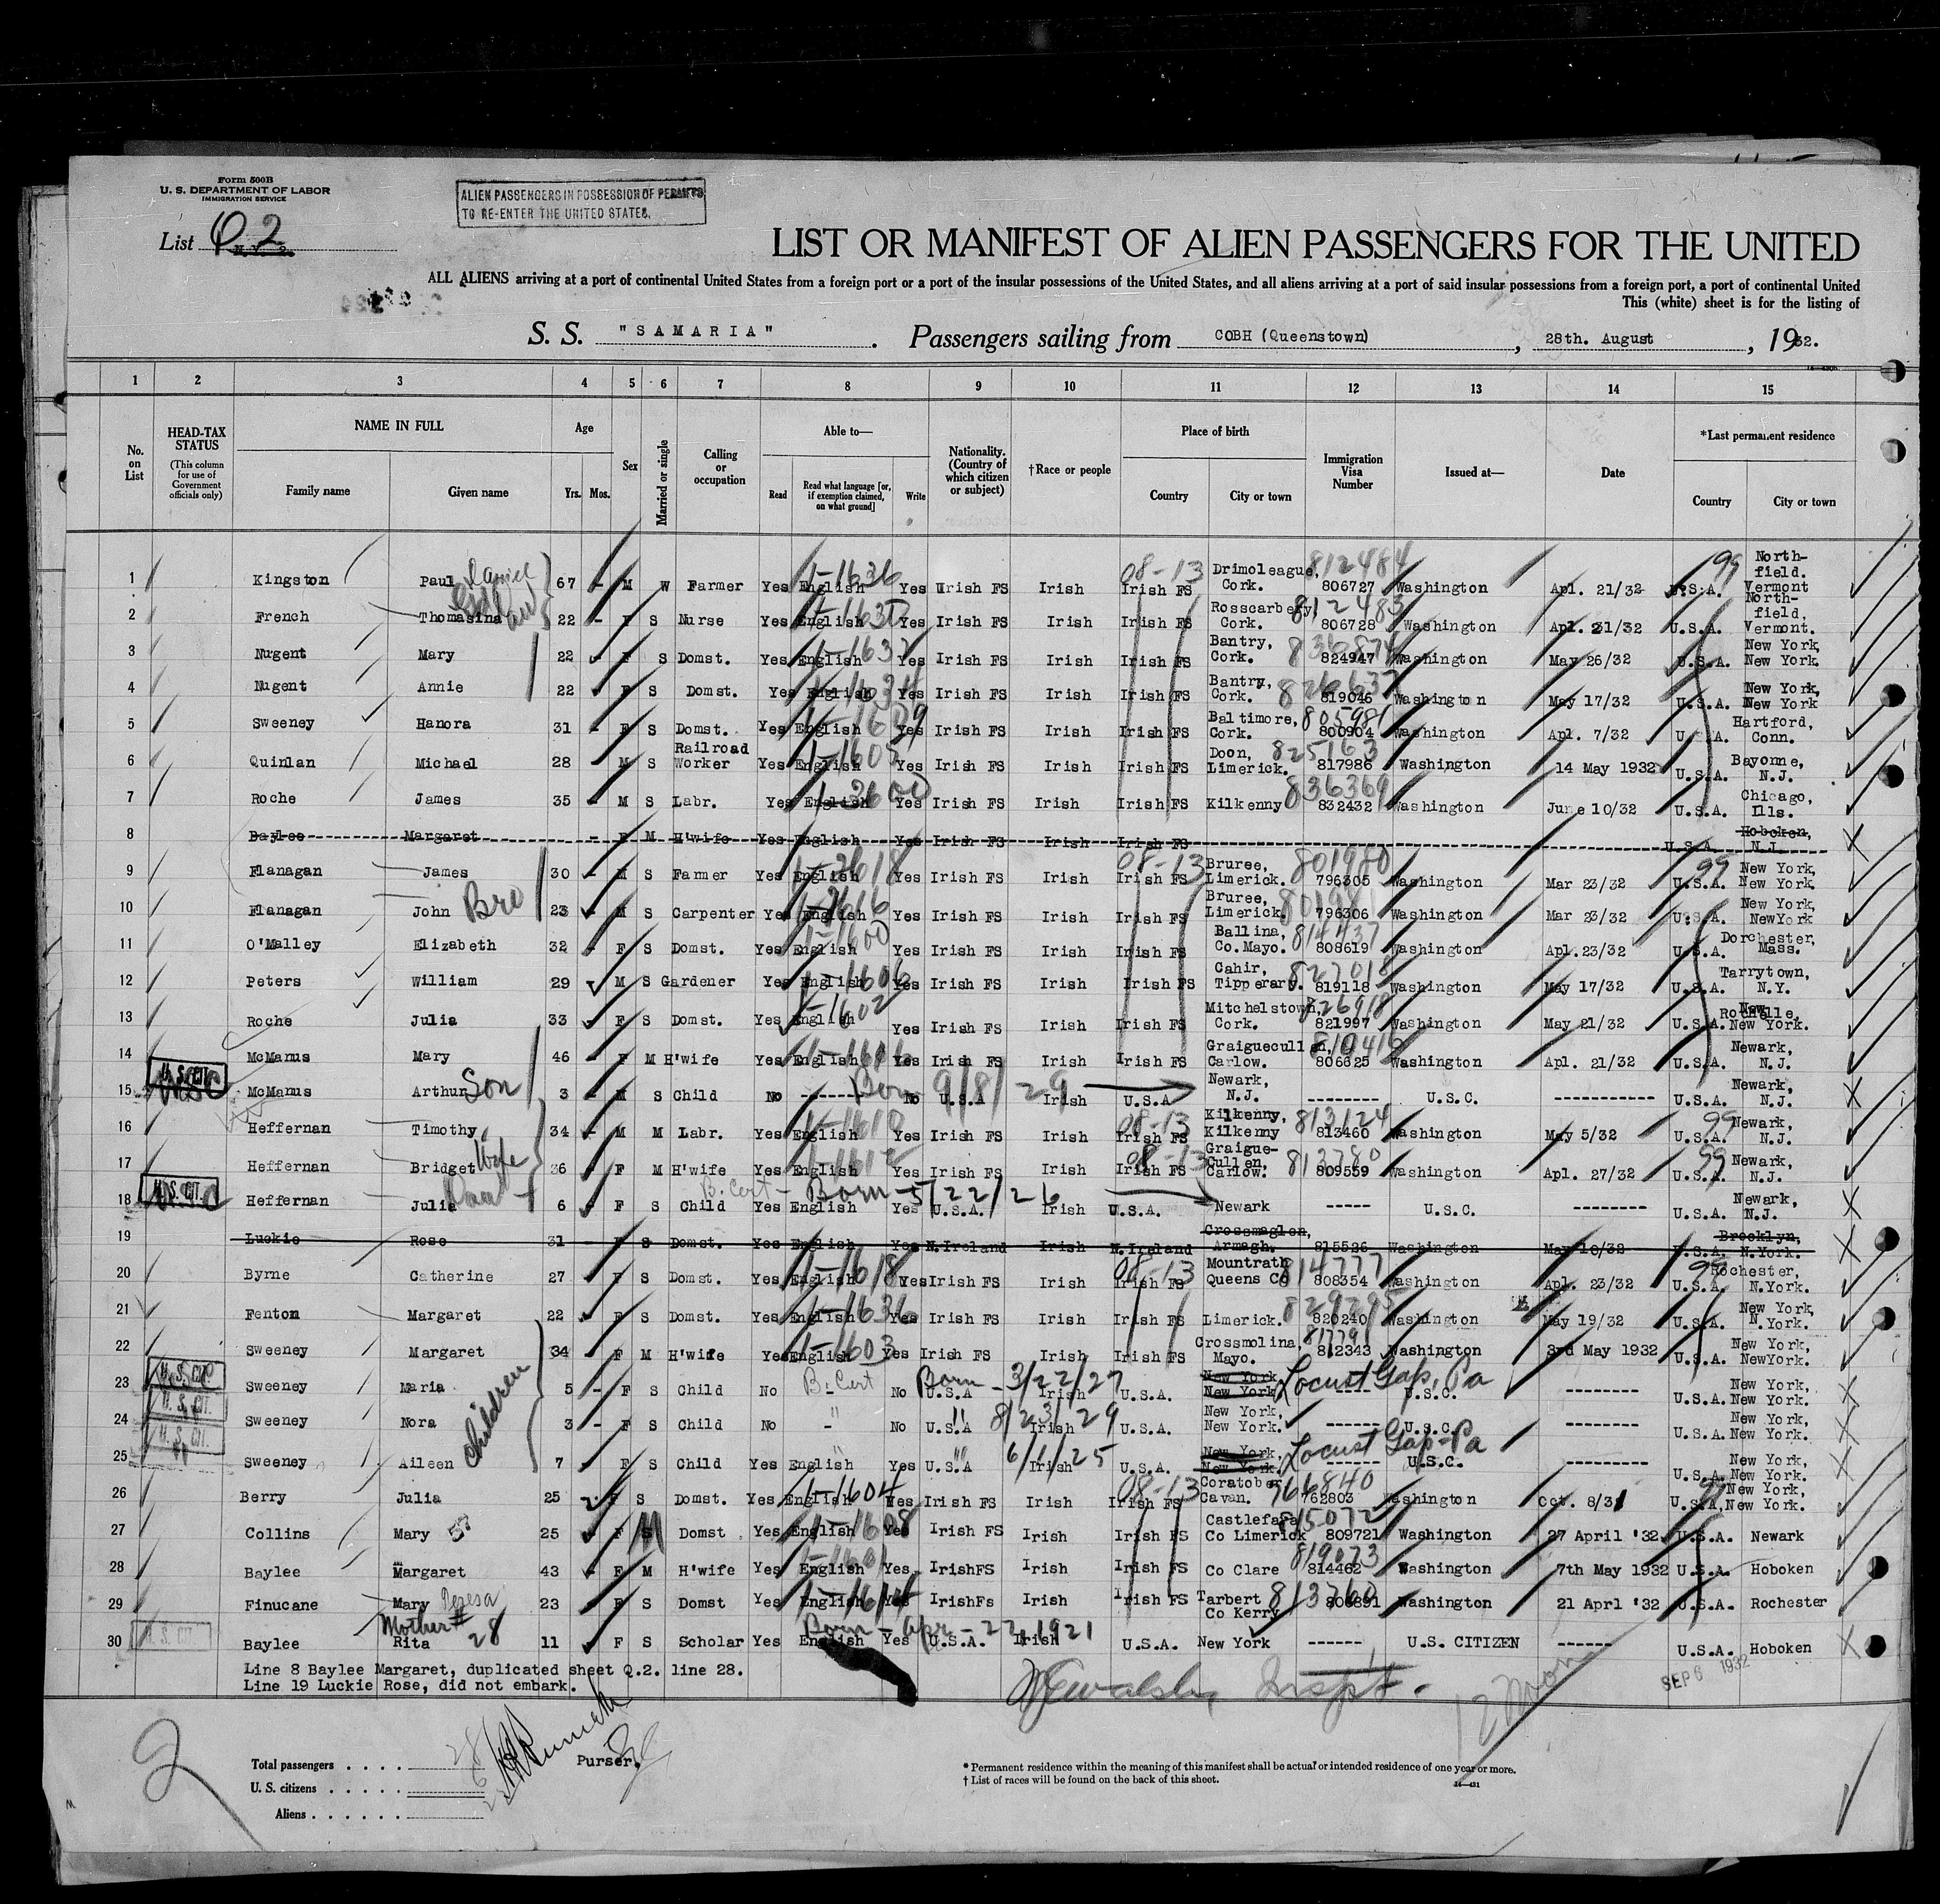 Form 500B
U. S. DEPARTMENT OF LABOR
IMMIGRATION SERVICE
ALIEN PASSENGERS IN POSSESSION OF PERMITS
TO RE-ENTER THE UNITED STATES.
List Q 2
LIST OR MANIFEST OF ALIEN PASSENGERS FOR THE UNITED
ALL ALIENS arriving at a port of continental United States from a foreign port or a port of the insular possessions of the United States, and all aliens arriving at a port of said insular possessions from a foreign port, a port of continental United
This (white) sheet is for the listing of
S. S. "SAMARIA". Passengers sailing from COBH (Queenstown), 28th. August, 1932.
1 2 3 4 5 6 7 8 9 10 11 12 13 14 15
No. on List HEAD-TAX STATUS (This column for use of Government officials only) NAME IN FULL Family name Given name Age Yrs. Mos. Sex Married or single Calling or occupation Able to— Read Read what language [or, if exemption claimed, on what ground] Write Nationality. (Country of which citizen or subject) †Race or people Place of birth Country City or town Immigration Visa Number Issued at— Date *Last permanent residence Country City or town
1 Kingston Paul Daniel 67 - M W Farmer Yes English 1-1636 Yes Irish FS Irish 08-13 Irish FS Drimoleague, Cork. 812484 806727 Washington Apl. 21/32 99 U.S.A. Northfield. Vermont
2 French Thomasina 22 - F S Nurse Yes English Yes Irish FS Irish Irish FS Rosscarbery, Cork. 812483 806728 Washington Apl. 21/32 U.S.A. Northfield, Vermont.
3 Nugent Mary 22 F S Domst. Yes English Yes Irish FS Irish Irish FS Bantry, Cork. 824947 Washington May 26/32 U.S.A. New York, New York.
4 Nugent Annie 22 F S Domst. Yes English Yes Irish FS Irish Irish FS Bantry, Cork. 819046 Washington May 17/32 U.S.A. New York, New York
5 Sweeney Hanora 31 - F S Domst. Yes English Yes Irish FS Irish Irish FS Baltimore, Cork. 805981 800904 Washington Apl. 7/32 U.S.A. Hartford, Conn.
6 Quinlan Michael 28 - M S Railroad Worker Yes English Yes Irish FS Irish Irish FS Doon, Limerick. 825163 817986 Washington 14 May 1932 U.S.A. Bayonne, N.J.
7 Roche James 35 - M S Labr. Yes English Yes Irish FS Irish Irish FS Kilkenny 836369 832432 Washington June 10/32 U.S.A. Chicago, Ills.
8 Baylee Margaret - F M H'wife Yes English Yes Irish FS Irish Irish FS U.S.A. Hoboken, N.J.
9 Flanagan James 30 - M S Farmer Yes English Yes Irish FS Irish 08-13 Irish FS Bruree, Limerick. 801980 796305 Washington Mar 23/32 99 U.S.A. New York, New York.
10 Flanagan John Bro 23 M S Carpenter Yes English Yes Irish FS Irish Irish FS Bruree, Limerick. 801981 796306 Washington Mar 23/32 U.S.A. New York, NewYork
11 O'Malley Elizabeth 32 - F S Domst. Yes English 1-1600 Yes Irish FS Irish Irish FS Ballina, Co.Mayo. 814437 808619 Washington Apl.23/32 U.S.A. Dorchester, Mass.
12 Peters William 29 M S Gardener Yes English 1-1606 Yes Irish FS Irish Irish FS Cahir, Tipperary. 827018 819118 Washington May 17/32 U.S.A. Tarrytown, N.Y.
13 Roche Julia 33 F S Domst. Yes English 1-1602 Yes Irish FS Irish Irish FS Mitchelstown, Cork. 826918 821997 Washington May 21/32 U.S.A. New Rochelle, New York.
14 McManus Mary 46 - F M H'wife Yes English Yes Irish FS Irish Irish FS Graiguecullen, Carlow. 806625 Washington Apl. 21/32 U.S.A. Newark, N.J.
15 U.S. CIT. McManus Arthur Son 3 - M S Child No ------- Born 9/8/29 No U.S.A Irish U.S.A Newark, N.J. -------- U.S.C. ----------- U.S.A. Newark, N.J.
16 Heffernan Timothy, 34 - M M Labr. Yes English 1-1610 Yes Irish FS Irish 08-13 Irish FS Kilkenny, Kilkenny 813124 813460 Washington May 5/32 99 U.S.A. Newark, N.J.
17 Heffernan Bridget Wife 36 - F M H'wife Yes English 1-1612 Yes Irish FS Irish 08-13 Irish FS Graigue-Cullen, Carlow. 813780 809559 Washington Apl. 27/32 99 U.S.A. Newark, N.J.
18 U.S. CIT. Heffernan Julia 6 F S Child Yes English B. Cert - Born - 5/22/26 Yes U.S.A. Irish U.S.A. Newark ----- U.S.C. -------- U.S.A. Newark, N.J.
19 Luckie Rose 31 - F S Domst. Yes English Yes N.Ireland Irish N.Ireland Crossmaglen, Armagh. 815526 Washington May 10/32 U.S.A. Brooklyn, N.York.
20 Byrne Catherine 27 F S Domst. Yes English 1-1618 Yes Irish FS Irish 08-13 Irish FS Mountrath Queens Co 814777 808354 Washington Apl. 23/32 99 U.S.A. Rochester, N.York.
21 Fenton Margaret 22 F S Domst. Yes English 1-1636 Yes Irish FS Irish Irish FS Limerick. 829295 820240 Washington May 19/32 U.S.A. New York, N.York.
22 Sweeney Margaret 34 F M H'wife Yes English 1-1603 Yes Irish FS Irish Irish FS Crossmolina, Mayo. 812343 Washington 3rd May 1932 U.S.A. New York, NewYork.
23 U.S. CIT. Sweeney Maria 5 - F S Child No B. Cert - No Born - 3/22/27 U.S.A Irish U.S.A. New York, New York Locust Gap, Pa U.S.C. -------- U.S.A. New York, New York.
24 U.S. CIT. Sweeney Nora children 3 - F S Child No " - No U.S.A " 8/23/29 Irish U.S.A. New York, New York. ------ U.S.C. -------- U.S.A. New York, New York.
25 U.S. CIT. Sweeney Aileen 7 F S Child Yes English " Yes U.S.A " 6/1/25 Irish U.S.A. New York, New York. Locust Gap-Pa ------ U.S.C. --------- U.S.A. New York, New York.
26 Berry Julia 25 F S Domst. Yes English 1-1604 Yes Irish FS Irish 08-13 Irish FS Coratober Cavan. 766840 762803 Washington Oct. 8/31 99 U.S.A. New York, New York.
27 Collins Mary 25 F M Domst Yes English 1-1608 Yes Irish FS Irish Irish FS Castlefara Co Limerick 815072 809721 Washington 27 April '32 U.S.A. Newark
28 Baylee Margaret 43 - F M H'wife Yes English 1-1601 Yes. IrishFS Irish Irish FS Co Clare 819073 814462 Washington 7th May 1932 U.S.A. Hoboken
29 Finucane Mary Teresa 23 F S Domst Yes English Yes IrishFs Irish Irish FS Tarbert Co Kerry 813760 806891 Washington 21 Aprl '32 U.S.A. Rochester
30 U.S. CIT. Baylee Rita Mother # 28 11 F S Scholar Yes English Born - Apr - 22, 1921 Yes U.S.A. Irish U.S.A. New York ------ U.S. CITIZEN ------ U.S.A. Hoboken
Line 8 Baylee Margaret, duplicated sheet Q.2. line 28.
Line 19 Luckie Rose, did not embark.
SEP 6 1932
2
Total passengers . . . .
Purser.
U. S. citizens . . . . .
Aliens . . . . . .
* Permanent residence within the meaning of this manifest shall be actual or intended residence of one year or more.
† List of races will be found on the back of this sheet.